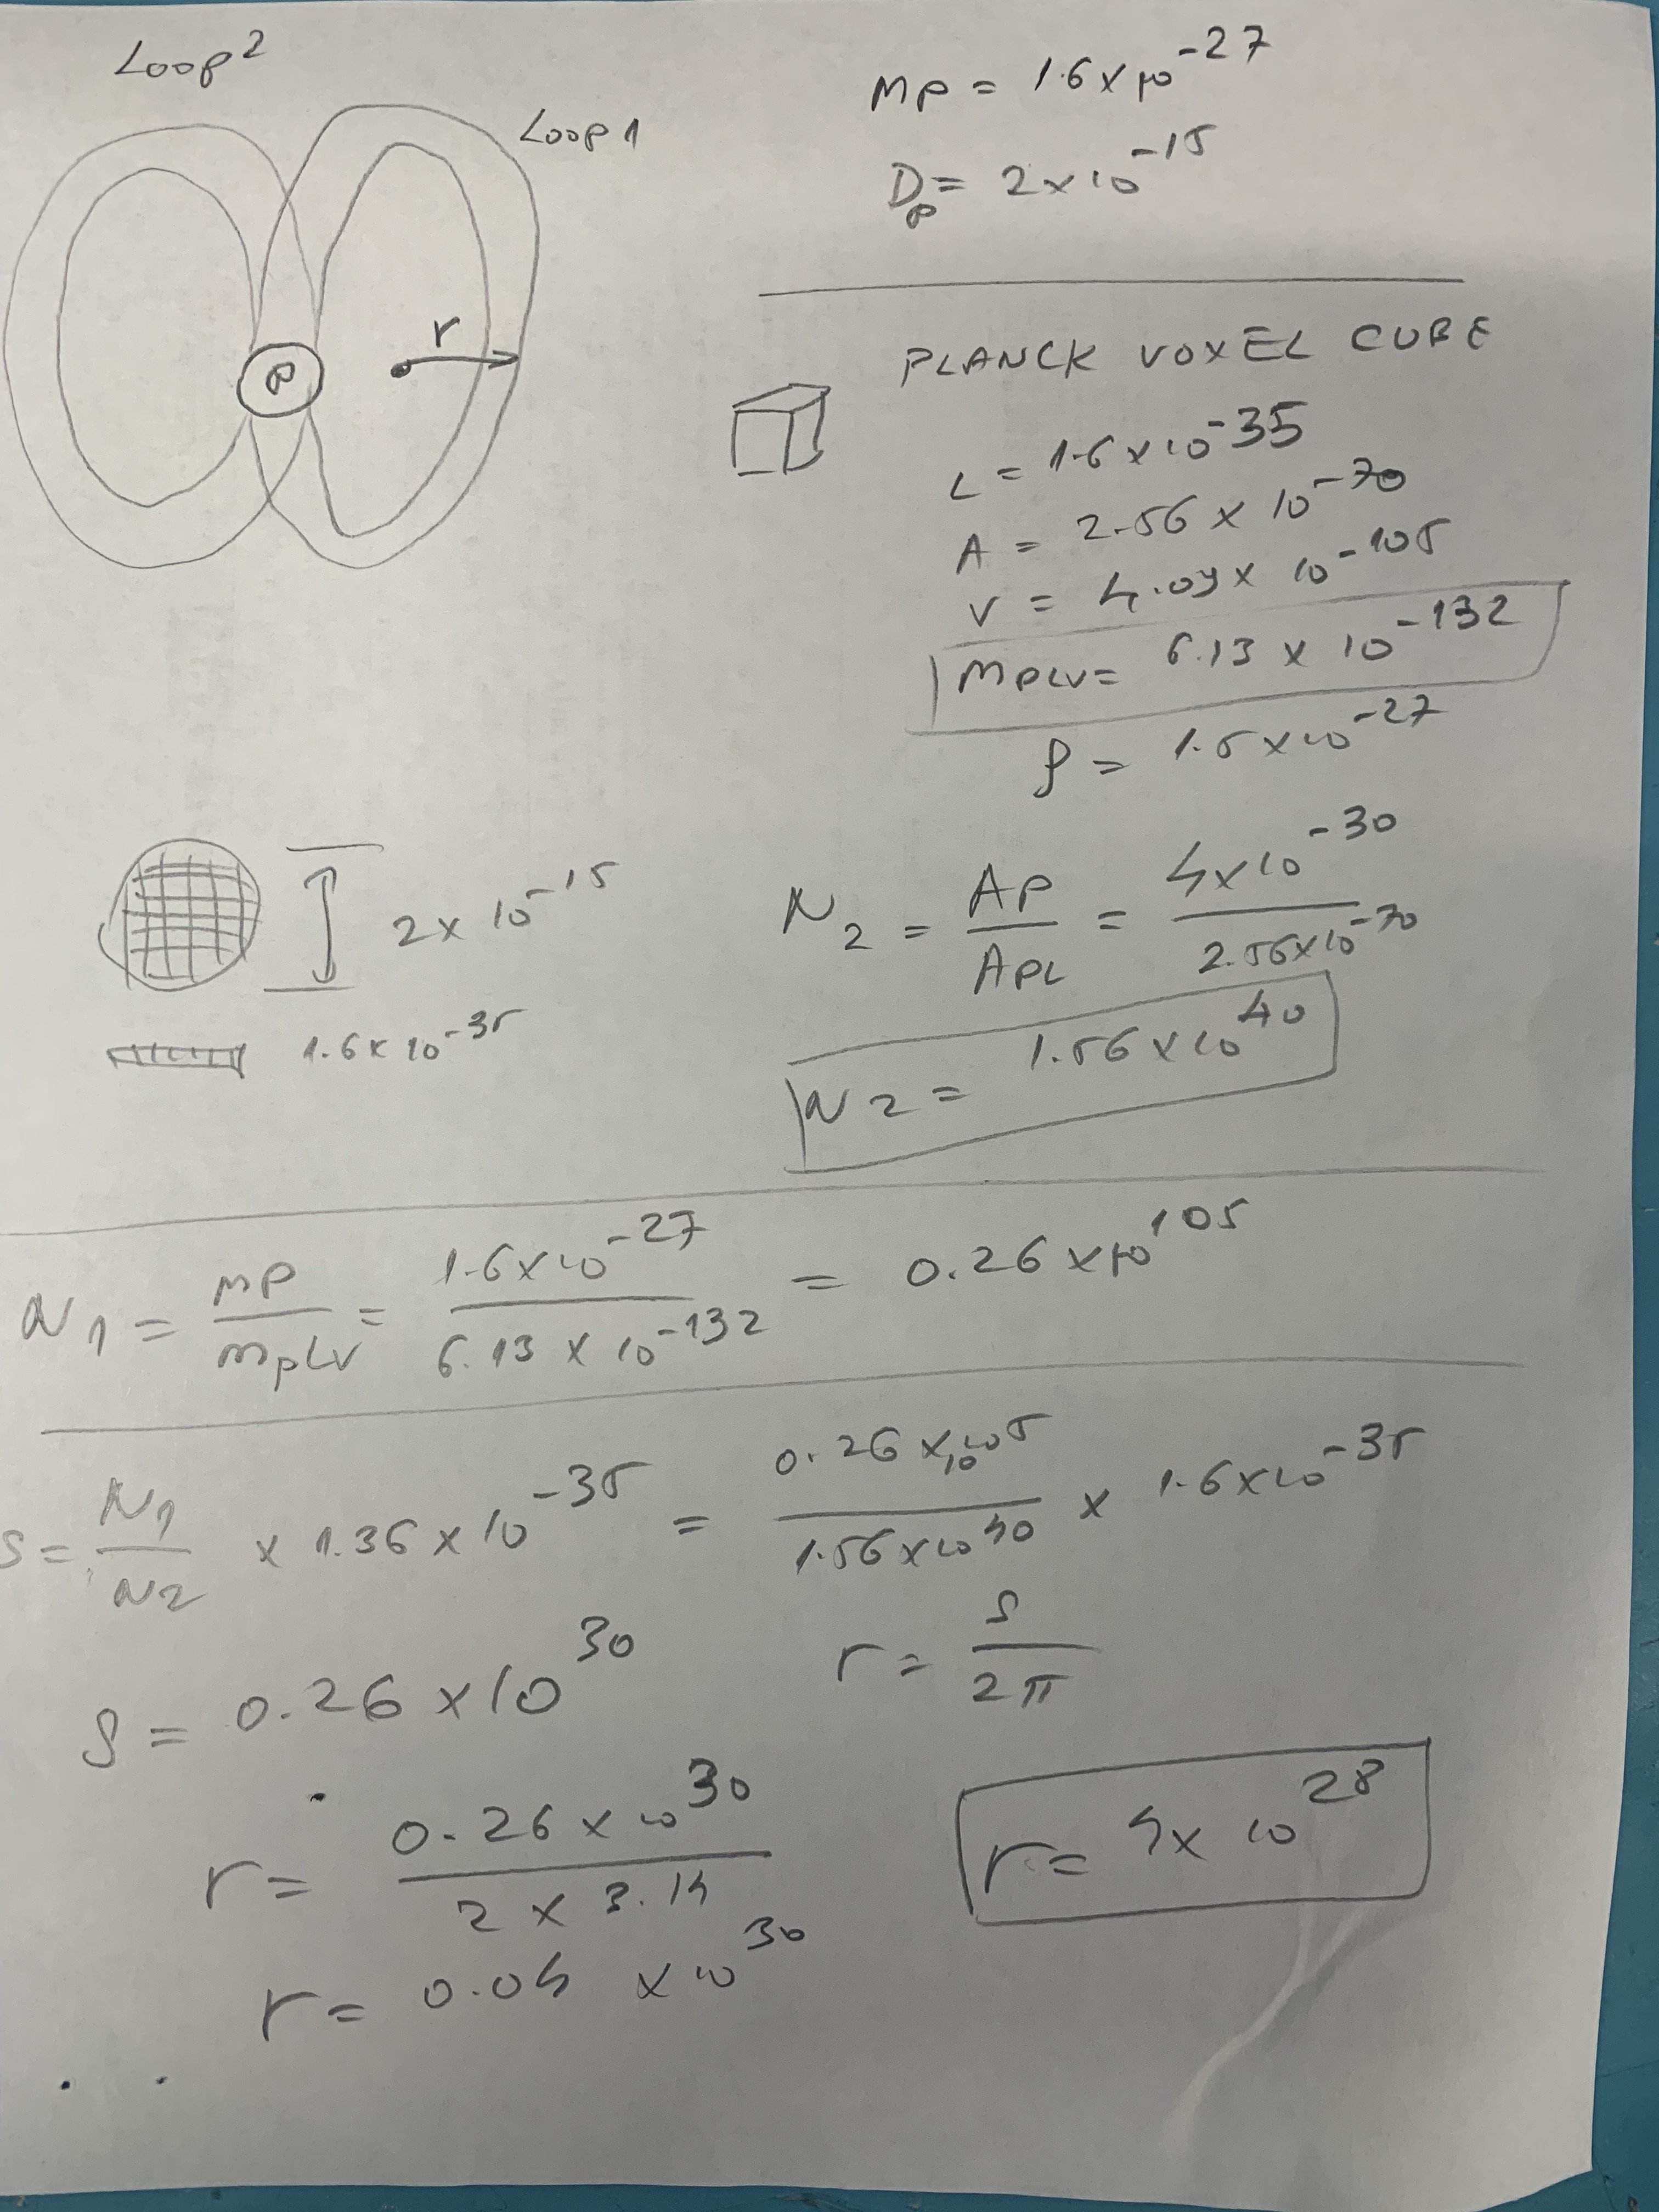 Loop 2
Loop 1
r
P
MP = 1.6 x 10^-27
Dp = 2 x 10^-15
PLANCK VOXEL CUBE
L = 1.6 x 10^-35
A = 2.56 x 10^-70
V = 4.09 x 10^-105
MPLV = 6.13 x 10^-132
ρ = 1.5 x 10^-27
2 x 10^-15
1.6 x 10^-35
N2 = AP / APL = 4 x 10^-30 / 2.56 x 10^-70
N2 = 1.56 x 10^40
N1 = MP / MPLV = 1.6 x 10^-27 / 6.13 x 10^-132 = 0.26 x 10^105
S = N1 / N2 x 1.36 x 10^-35 = 0.26 x 10^105 / 1.56 x 10^40 x 1.6 x 10^-35
S = 0.26 x 10^30
r = S / 2π
r = 0.26 x 10^30 / 2 x 3.14
r = 4 x 10^28
r = 0.04 x 10^30